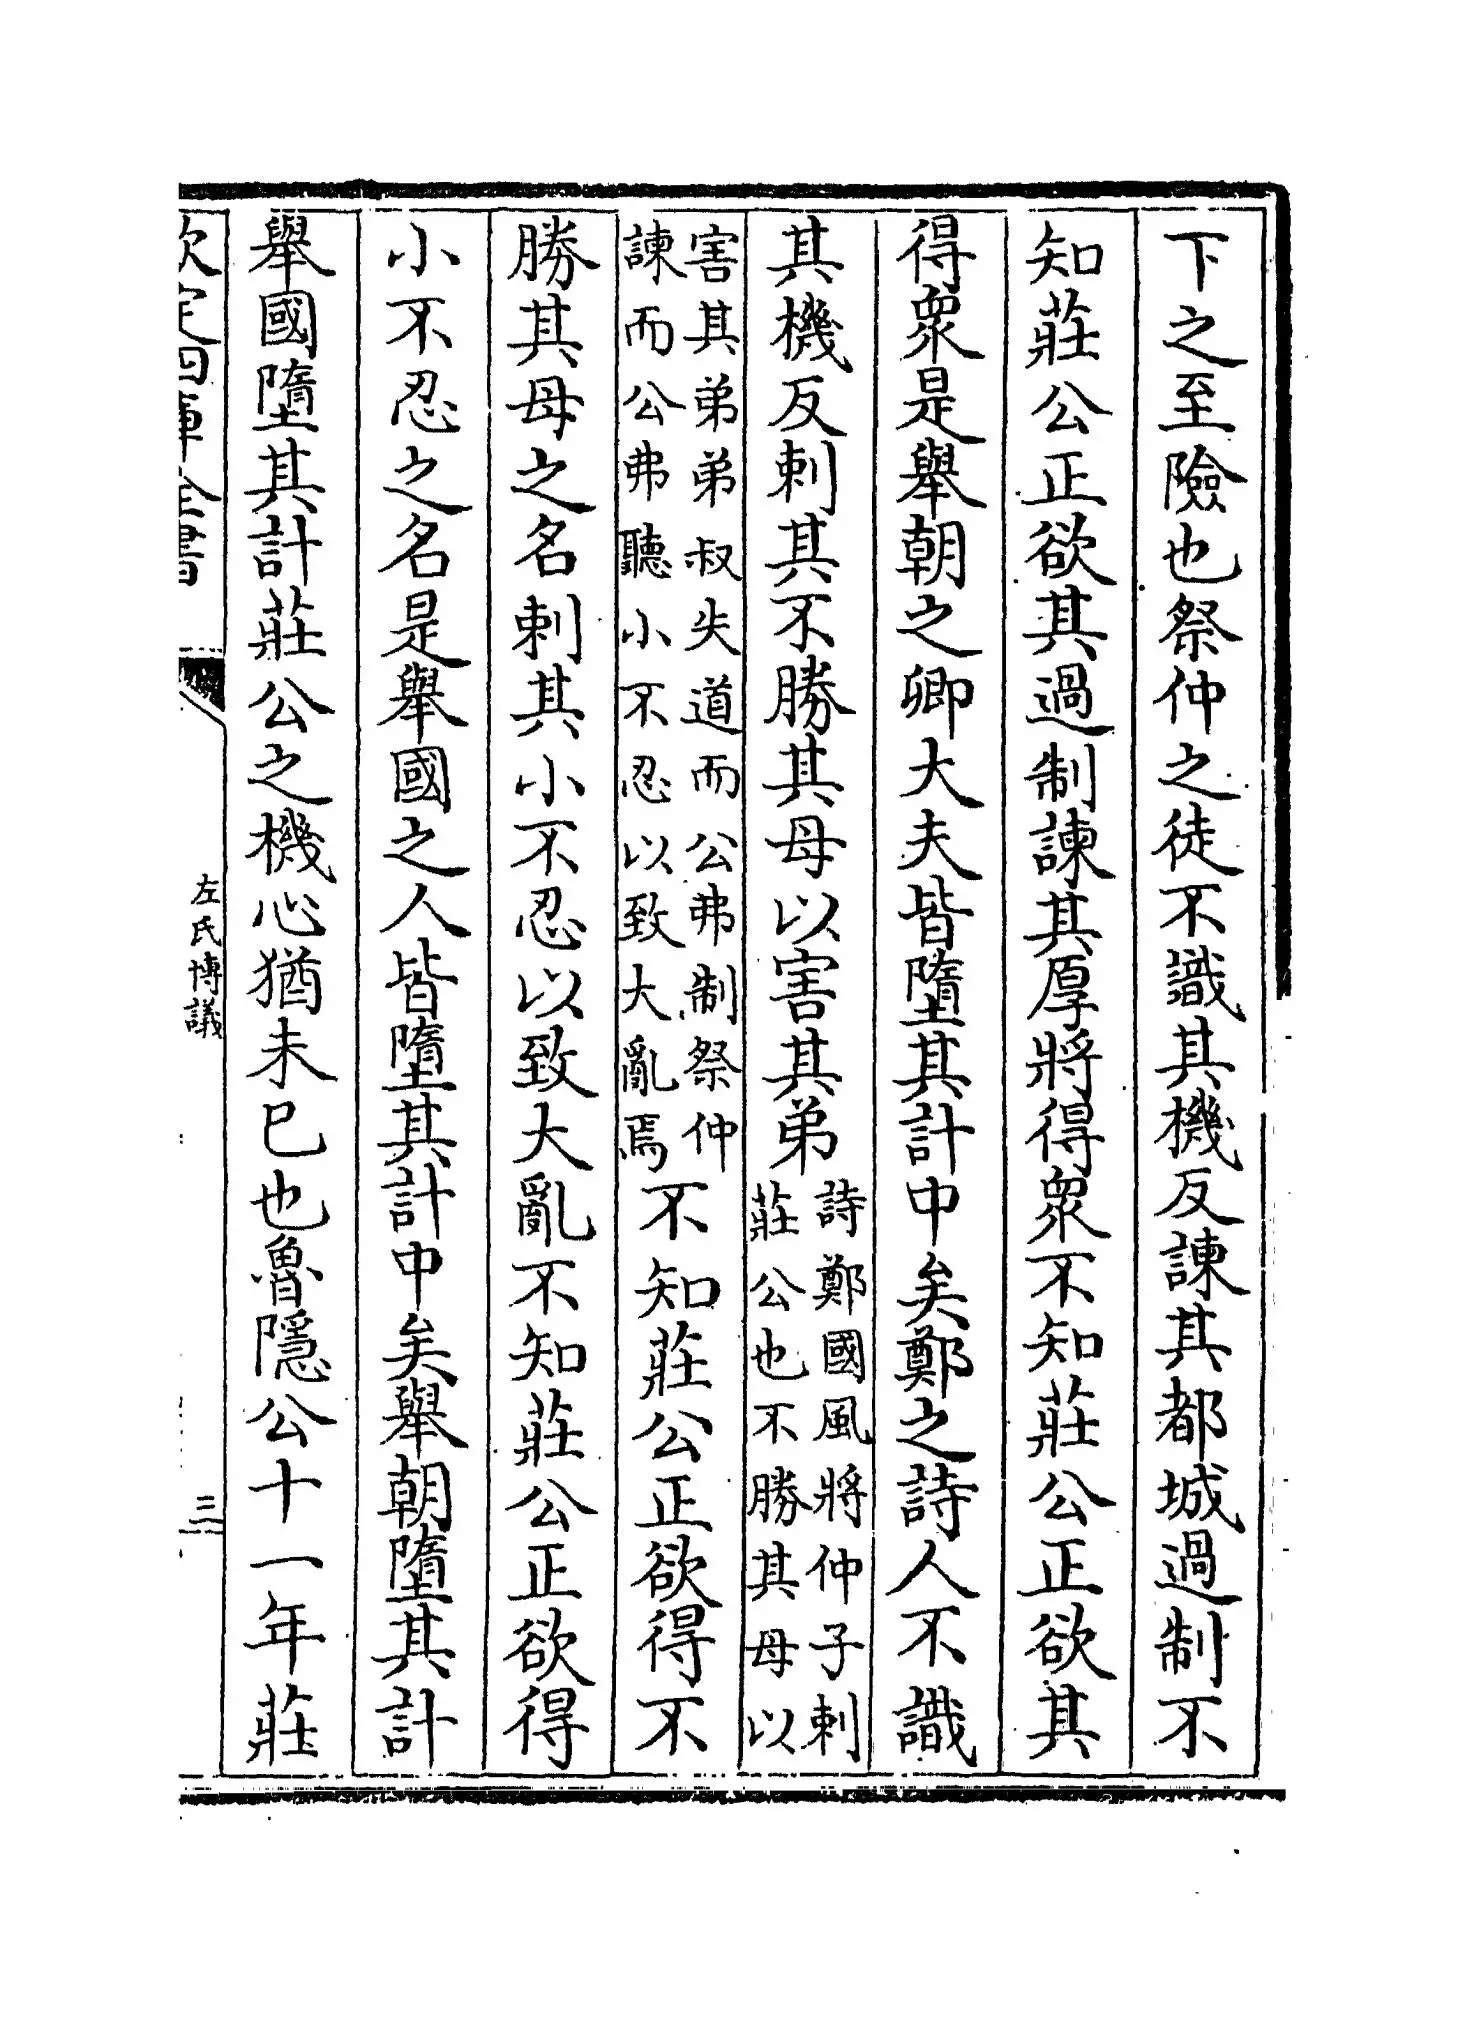 下之至險也祭仲之徒不識其機反諫其都城過制不
知莊公正欲其過制諫其厚將得衆不知莊公正欲其
得衆是舉朝之卿大夫皆墮其計中矣鄭之詩人不識
其機反刺其不勝其母以害其弟
詩鄭國風將仲子刺
莊公也不勝其母以
害其弟弟叔失道而公弗制祭仲
諫而公弗聽小不忍以致大亂焉
不知莊公正欲得不
勝其母之名刺其小不忍以致大亂不知莊公正欲得
小不忍之名是舉國之人皆墮其計中矣舉朝墮其計
舉國墮其計莊公之機心猶未已也魯隱公十一年莊
欽定四庫全書
左氏博議
三